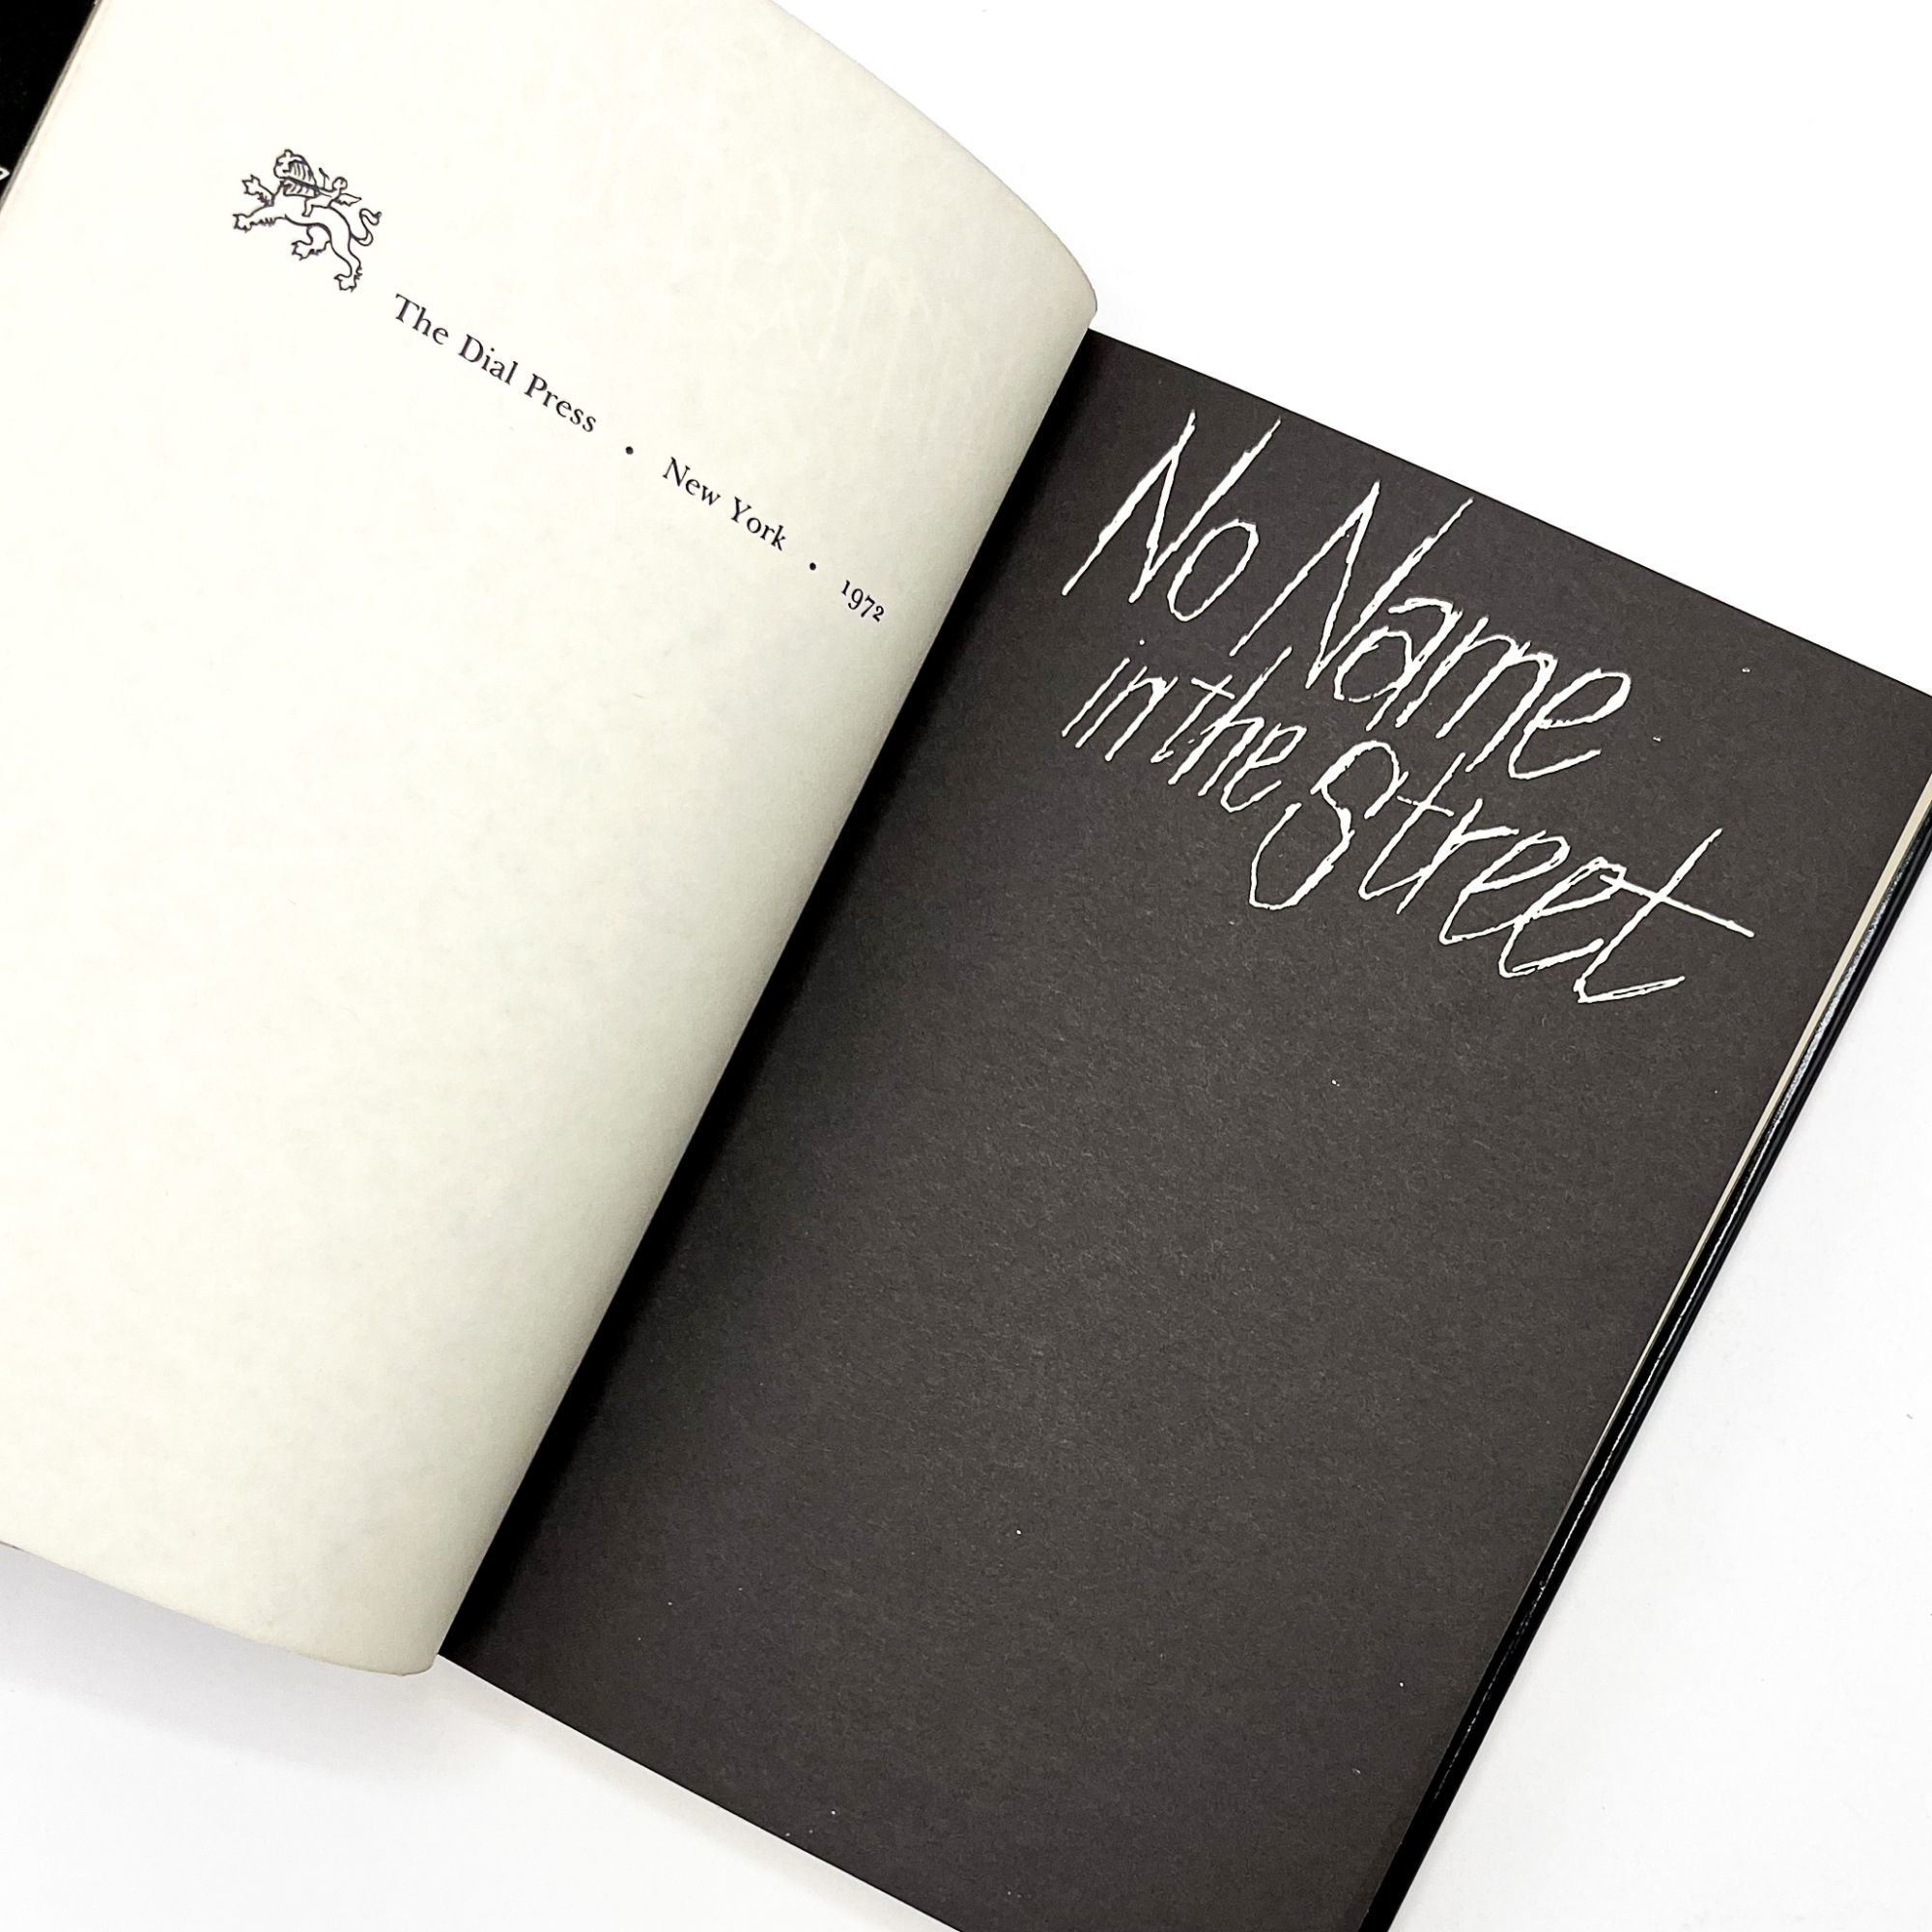 The Dial Press • New York • 1972
No Name
in the Street